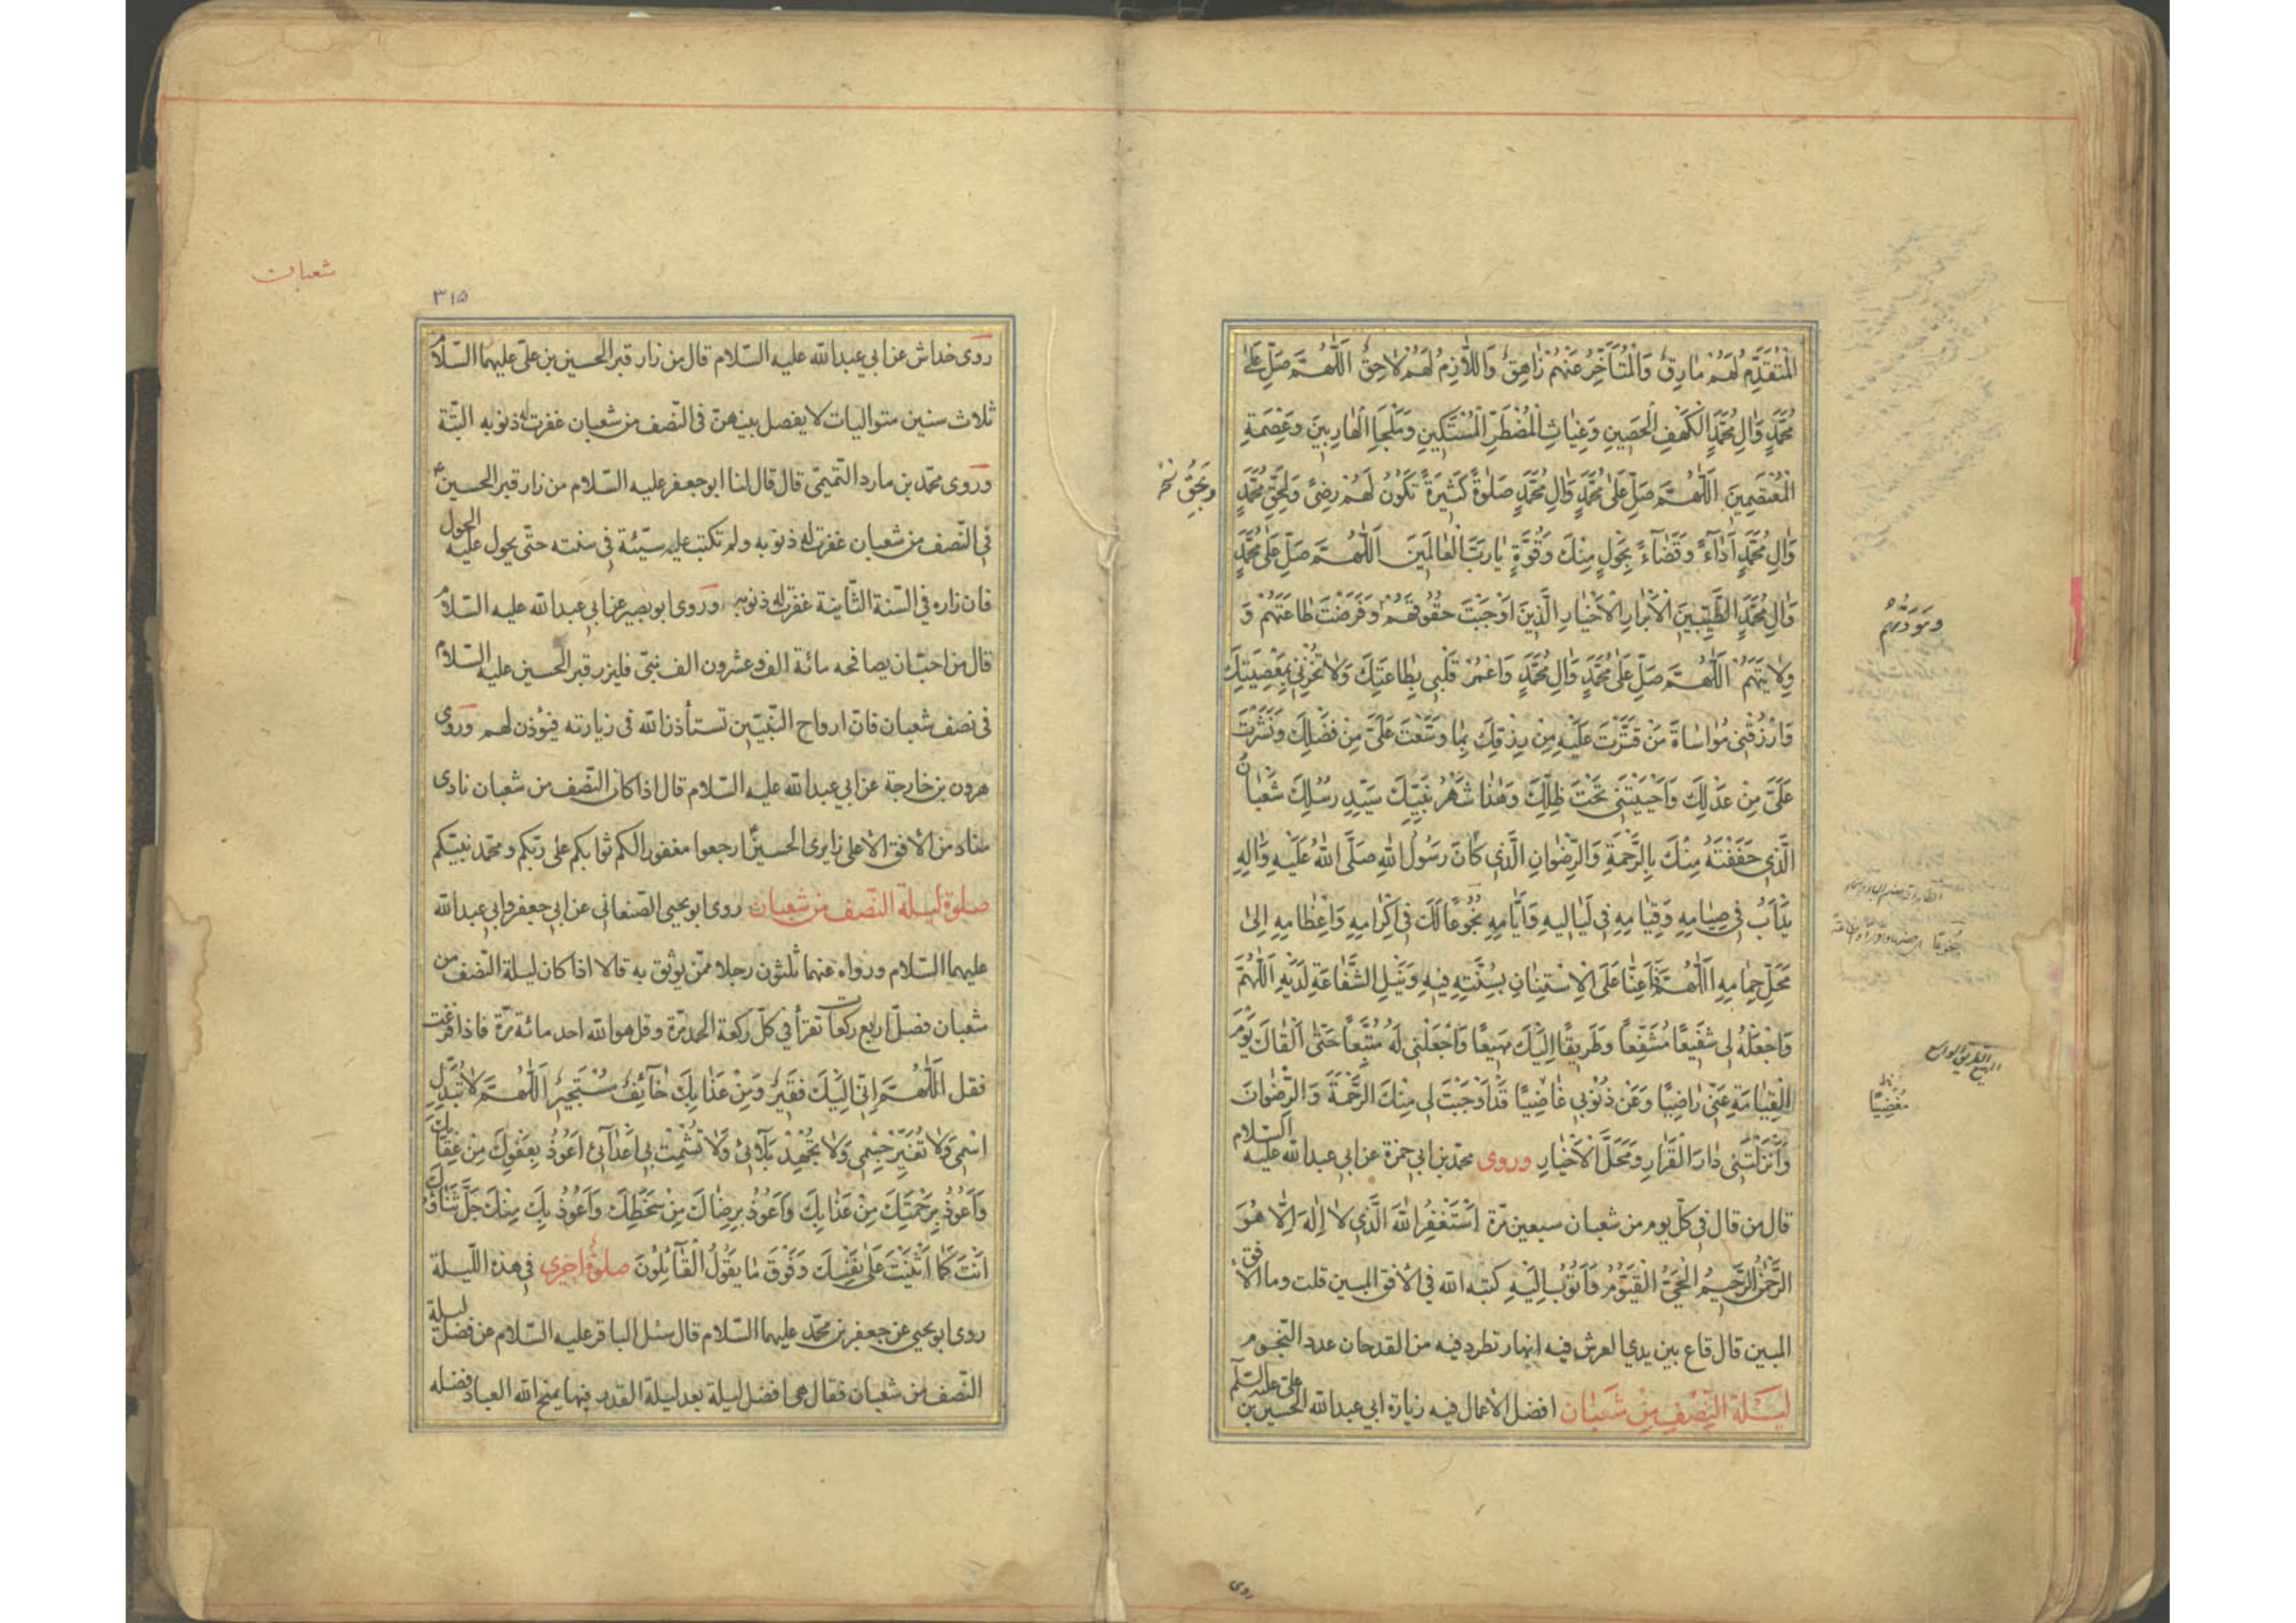 الْمُتَقَدِّمُ لَهُمْ مَارِقٌ وَالْمُتَأَخِّرُ عَنْهُمْ زَاهِقٌ وَاللَّازِمُ لَهُمْ لَاحِقٌ اَللّٰهُمَّ صَلِّ عَلٰى
مُحَمَّدٍ وَاٰلِ مُحَمَّدٍ الْكَهْفِ الْحَصِينِ وَغِيَاثِ الْمُضْطَرِّ الْمُسْتَكِينِ وَمَلْجَإِ الْهَارِبِينَ وَعِصْمَةِ
الْمُعْتَصِمِينَ اَللّٰهُمَّ صَلِّ عَلٰى مُحَمَّدٍ وَاٰلِ مُحَمَّدٍ صَلٰوةً كَثِيرَةً تَكُونُ لَهُمْ رِضىً وَلِحَقِّ مُحَمَّدٍ
وَبِحَقِّ
وَاٰلِ مُحَمَّدٍ اَدَاءً وَقَضَاءً بِحَوْلٍ مِنْكَ وَقُوَّةٍ يَا رَبَّ الْعَالَمِينَ اَللّٰهُمَّ صَلِّ عَلٰى مُحَمَّدٍ
وَاٰلِ مُحَمَّدٍ الطَّيِّبِينَ الْاَبْرَارِ الْاَخْيَارِ الَّذِينَ اَوْجَبْتَ حُقُوقَهُمْ وَفَرَضْتَ طَاعَتَهُمْ وَ
وَمَوَدَّتَهُمْ
وِلَايَتَهُمْ اَللّٰهُمَّ صَلِّ عَلٰى مُحَمَّدٍ وَاٰلِ مُحَمَّدٍ وَاعْمُرْ قَلْبِي بِطَاعَتِكَ وَلَا تُخْزِنِي بِمَعْصِيَتِكَ
وَارْزُقْنِي مُوَاسَاةَ مَنْ قَتَّرْتَ عَلَيْهِ مِنْ رِزْقِكَ بِمَا وَسَّعْتَ عَلَيَّ مِنْ فَضْلِكَ وَنَشَرْتَ
عَلَيَّ مِنْ عَدْلِكَ وَاَحْيَيْتَنِي تَحْتَ ظِلِّكَ وَهٰذَا شَهْرُ نَبِيِّكَ سَيِّدِ رُسُلِكَ شَعْبَانُ
الَّذِي حَفَفْتَهُ مِنْكَ بِالرَّحْمَةِ وَالرِّضْوَانِ الَّذِي كَانَ رَسُولُ اللهِ صَلَّى اللهُ عَلَيْهِ وَاٰلِهِ
يَدْاَبُ فِي صِيَامِهِ وَقِيَامِهِ فِي لَيَالِيهِ وَاَيَّامِهِ بُخُوعًا لَكَ فِي اِكْرَامِهِ وَاِعْظَامِهِ اِلٰى
مَحَلِّ حِمَامِهِ اَللّٰهُمَّ فَاَعِنَّا عَلَى الْاِسْتِنَانِ بِسُنَّتِهِ فِيهِ وَنَيْلِ الشَّفَاعَةِ لَدَيْهِ اَللّٰهُمَّ
وَاجْعَلْهُ لِي شَفِيعًا مُشَفَّعًا وَطَرِيقًا اِلَيْكَ مَهْيَعًا وَاجْعَلْنِي لَهُ مُتَّبِعًا حَتّٰى اَلْقَاكَ يَوْمَ
الْقِيَامَةِ عَنِّي رَاضِيًا وَعَنْ ذُنُوبِي غَاضِيًا قَدْ اَوْجَبْتَ لِي مِنْكَ الرَّحْمَةَ وَالرِّضْوَانَ
مُغْضِيًا
وَاَنْزَلْتَنِي دَارَ الْقَرَارِ وَمَحَلَّ الْاَخْيَارِ وروى محمّد بن ابي حمزة عن ابي عبد الله عليه السلام
قال من قال في كلّ يوم من شعبان سبعين مرّة اَسْتَغْفِرُ اللهَ الَّذِي لَا اِلٰهَ اِلَّا هُوَ
الرَّحْمٰنُ الرَّحِيمُ الْحَيُّ الْقَيُّومُ وَاَتُوبُ اِلَيْهِ كتبه الله في الأفق المبين قلت وما الأفق
المبين قال قاع بين يدي العرش فيه انهار تطرد فيه من القدحان عدد النّجوم
لَيْلَةُ النِّصْفِ مِنْ شَعْبَانَ افضل الأعمال فيه زيارة ابي عبد الله الحسين بن علي عليه السلم
روى
شعبان
٣١٥
روى خداش عن ابي عبد الله عليه السّلام قال من زار قبر الحسين بن عليّ عليهما السّلام
ثلاث سنين متواليات لا يفصل بينهنّ في النّصف من شعبان غفرت له ذنوبه البتّة
وروى محمّد بن مارد التّميميّ قال قال لنا ابو جعفر عليه السّلام من زار قبر الحسين ع
في النّصف من شعبان غفرت له ذنوبه ولم تكتب عليه سيّئة في سنته حتّى يحول عليه الحول
فان زاره في السّنة الثّانية غفرت له ذنوبه وروى ابو بصير عن ابي عبد الله عليه السّلام
قال من احبّ ان يصافحه مائة الف وعشرون الف نبيّ فليزر قبر الحسين عليه السّلام
في نصف شعبان فانّ ارواح النّبيّين تستأذن الله في زيارته فيؤذن لهم وروى
هرون بن خارجة عن ابي عبد الله عليه السّلام قال اذا كان النّصف من شعبان نادى
مناد من الأفق الأعلى زايري الحسين ع ارجعوا مغفورا لكم ثوابكم على ربّكم ومحمّد نبيّكم
صلوة ليلة النّصف من شعبان روى ابو يحيى الصّنعاني عن ابي جعفر وابي عبد الله
عليهما السّلام ورواه عنهما ثلثون رجلا ممّن يوثق به قالا اذا كان ليلة النّصف من
شعبان فصلّ اربع ركعات تقرأ في كلّ ركعة الحمد مرّة وقل هو الله احد مائة مرّة فاذا فرغت
فقل اَللّٰهُمَّ اِنِّي اِلَيْكَ فَقِيرٌ وَمِنْ عَذَابِكَ خَائِفٌ مُسْتَجِيرٌ اَللّٰهُمَّ لَا تُبَدِّلِ
اسْمِي وَلَا تُغَيِّرْ جِسْمِي وَلَا تُجْهِدْ بَلَائِي وَلَا تُشْمِتْ بِي اَعْدَائِي اَعُوذُ بِعَفْوِكَ مِنْ عِقَابِكَ
وَاَعُوذُ بِرَحْمَتِكَ مِنْ عَذَابِكَ وَاَعُوذُ بِرِضَاكَ مِنْ سَخَطِكَ وَاَعُوذُ بِكَ مِنْكَ جَلَّ ثَنَاؤُكَ
اَنْتَ كَمَا اَثْنَيْتَ عَلٰى نَفْسِكَ وَفَوْقَ مَا يَقُولُ الْقَائِلُونَ صلوة اخرى في هذه اللّيلة
روى ابو يحيى عن جعفر بن محمّد عليهما السّلام قال سئل الباقر عليه السّلام عن فضل ليلة
النّصف من شعبان فقال هي افضل ليلة بعد ليلة القدر فيها يمنح الله العباد فضله